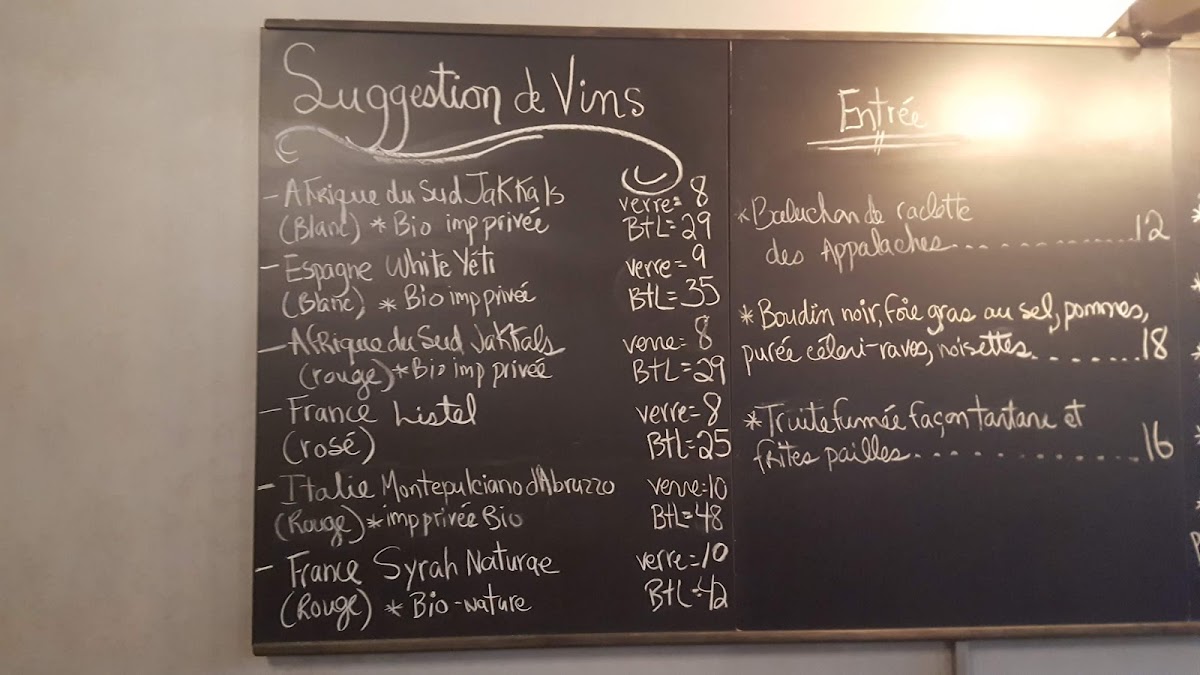 Suggestion de Vins
- Afrique du Sud Jakkals verre = 8
(Blanc) * Bio imp privée BtL = 29
- Espagne White Yéti verre = 9
(Blanc) * Bio imp privée BtL = 35
- Afrique du Sud Jakkals verre = 8
(rouge) * Bio imp privée BtL = 29
- France Listel verre = 8
(rosé) BtL = 25
- Italie Montepulciano d'Abruzzo verre = 10
(Rouge) * imp privée Bio BtL = 48
- France Syrah Naturae verre = 10
(Rouge) * Bio-nature BtL = 42
Entrée
* Baluchon de raclette
des Appalaches.................12
* Boudin noir, foie gras au sel, pommes,
purée céleri-raves, noisettes..........18
* Truite fumée façon tartare et
frites pailles...................16